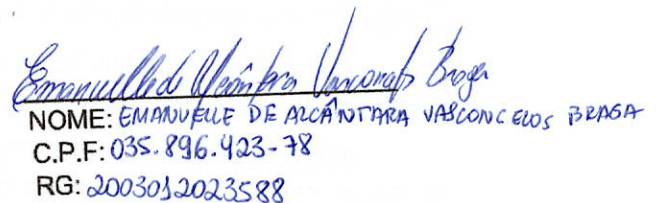 Emanuelle de Alcântara Vasconcelos Braga
NOME: EMANUELLE DE ALCÂNTARA VASCONCELOS BRAGA
C.P.F: 035.896.423-78
RG: 2003012023588